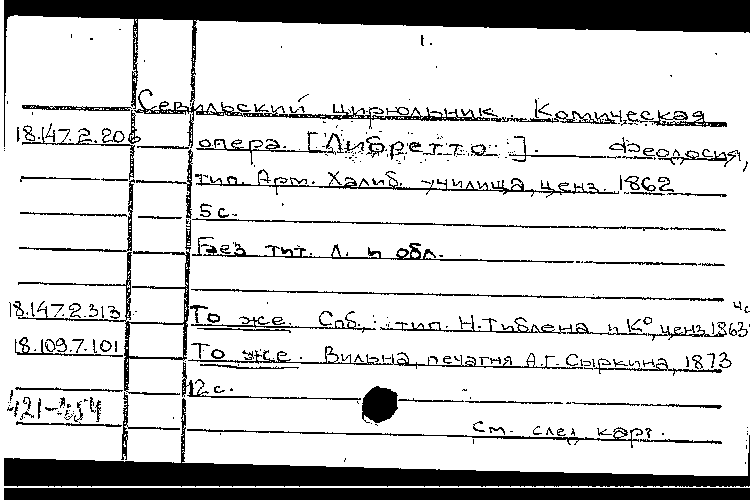 1.
Севильский цирюльник. Комическая
18.147.2.206 опера. [Либретто]. Феодосия,
тип. Арм. Халиб. училища, ценз. 1862
5 с.
Без тит. л. и обл.
4 с
18.147.2.313 То же. Спб., тип. Н. Тиблена и К°, ценз. 1863
18.109.7.101 То же. Вильна, печатня А.Г. Сыркина, 1873
12 с.
421-
См. след карт.